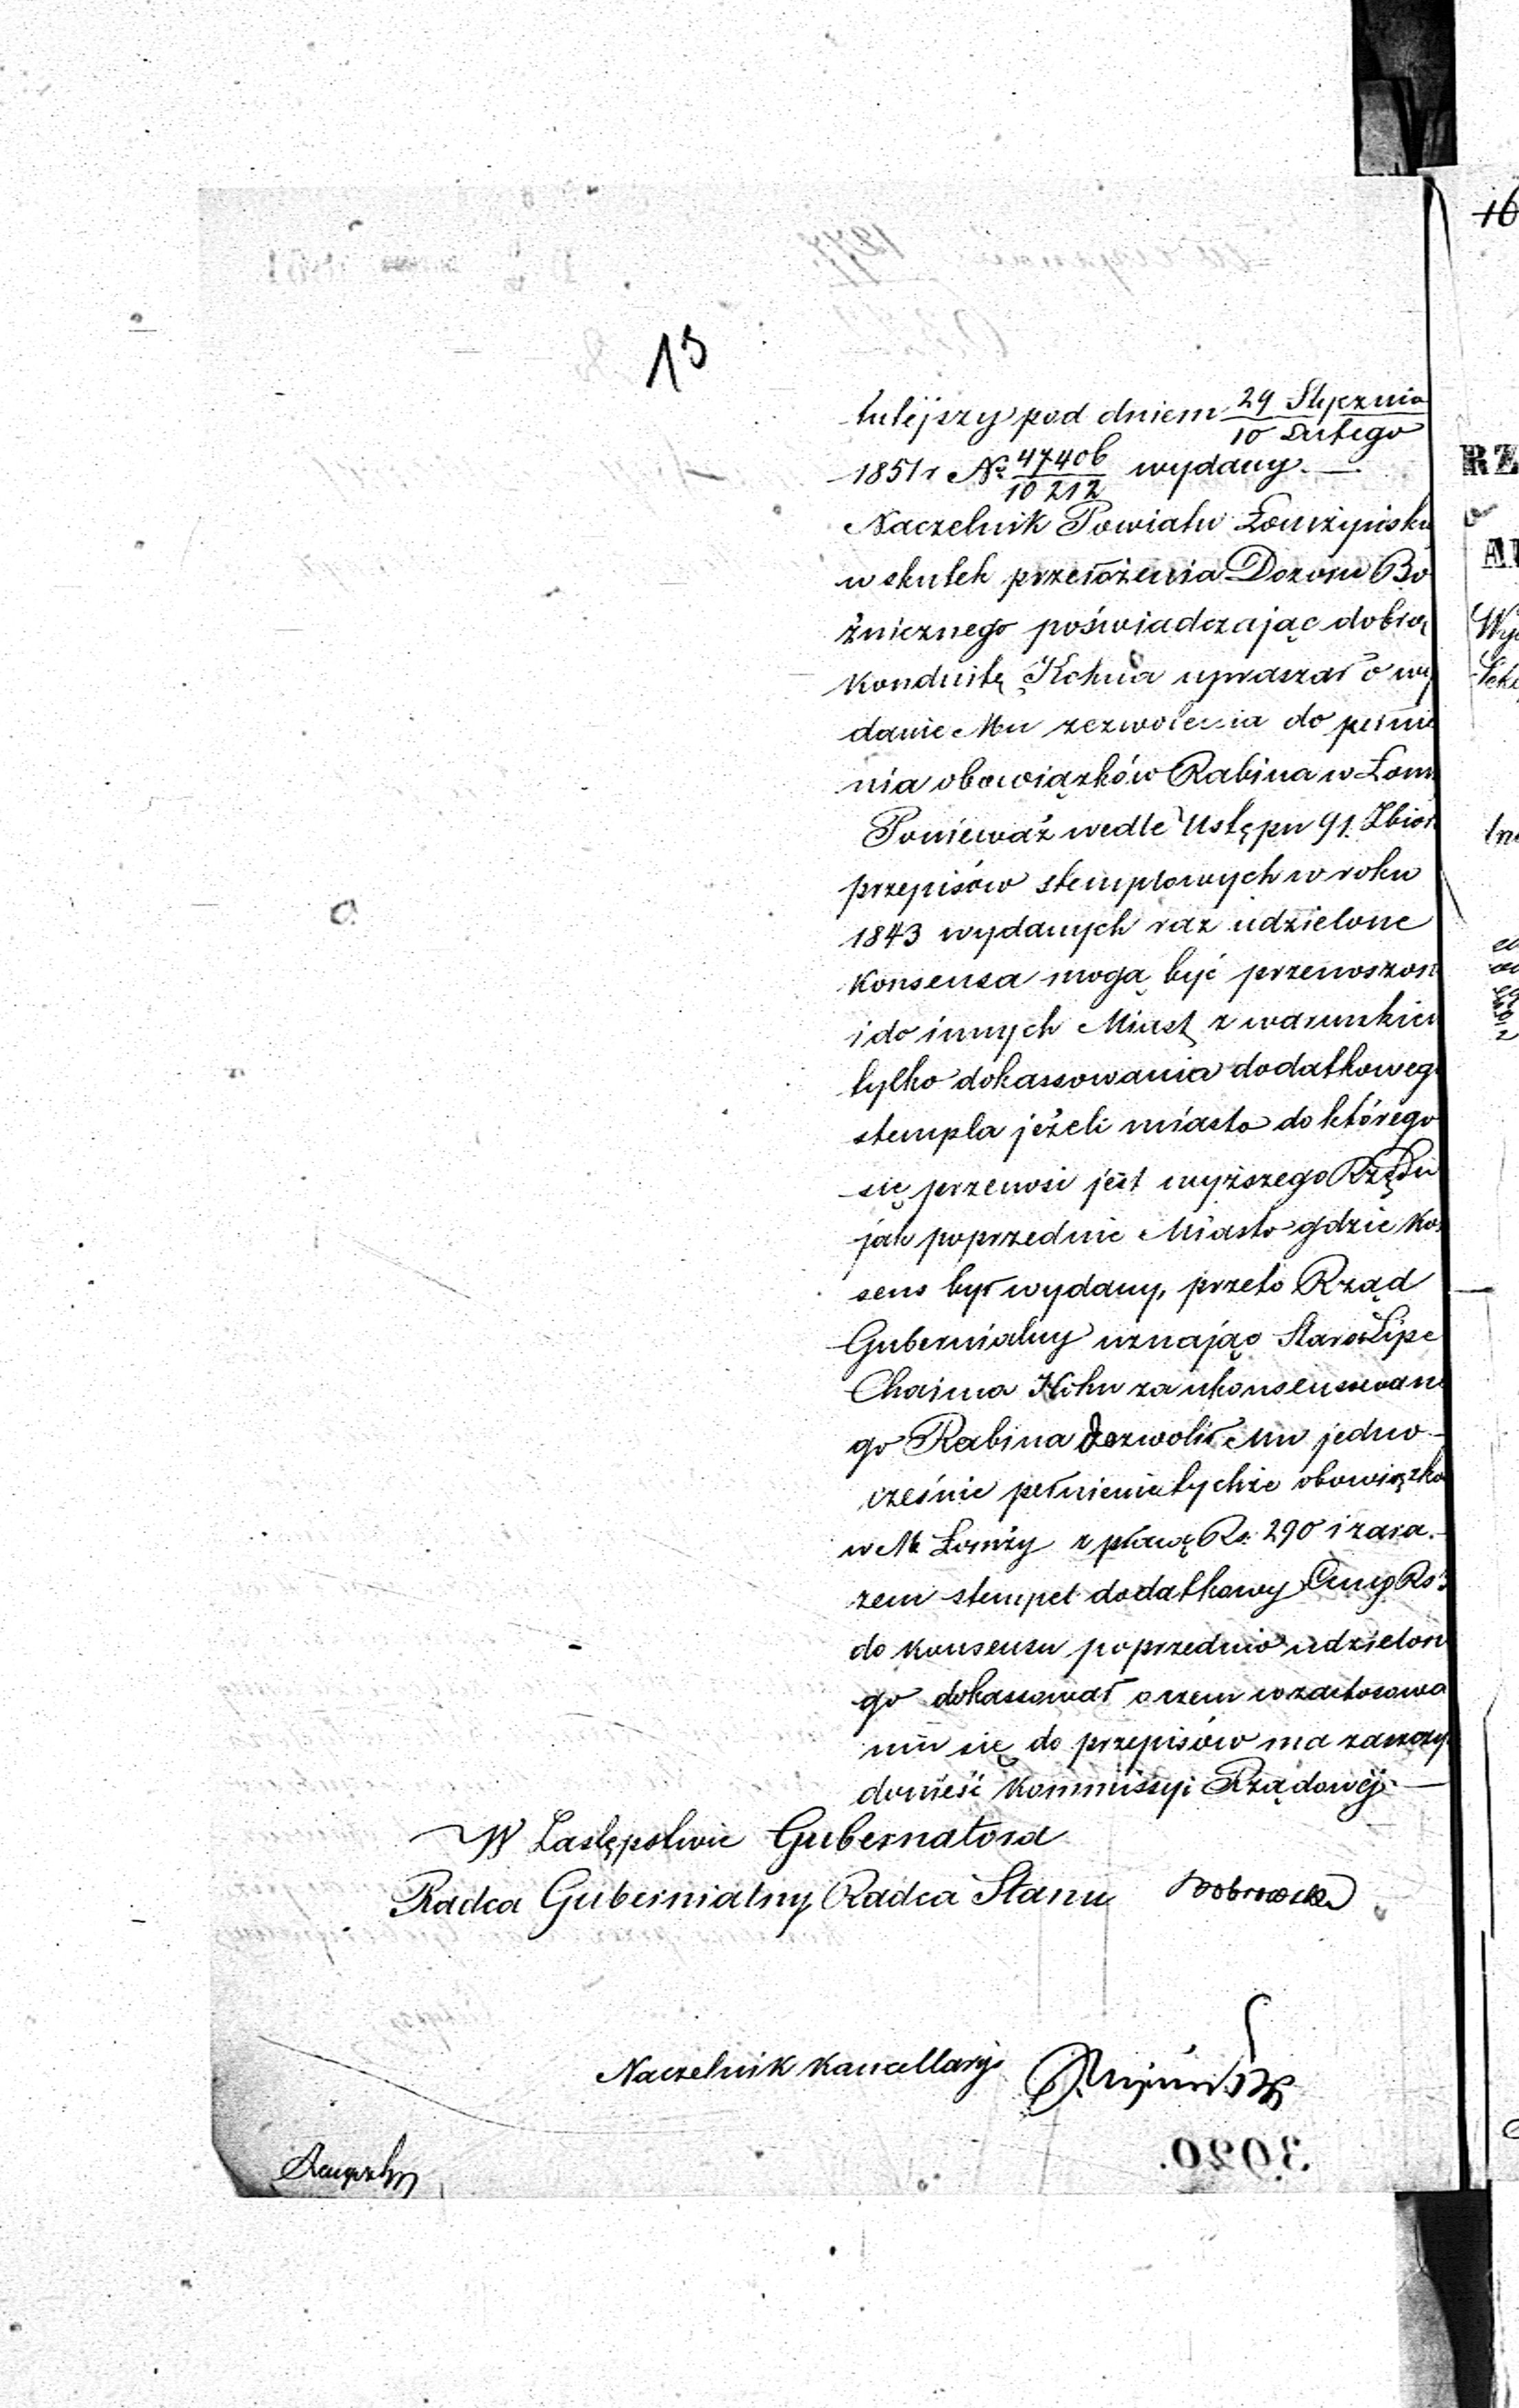 13
tutéjszy pod dniem 29 Stycznia / 10 Lutego
1851 r № 47406 / 10212 wydany. —
Naczelnik Powiatu Łomżyńsk
w skutek przełożenia Dozoru Bó
żnicznego poświadczając dobrą
konduitę Kohna upraszał o wy
danie Mu zezwolenia do pełnie
nia obowiązków Rabina w Łom
Ponieważ wedle Ustępu 91. Zbior
przepisów stemplowych w roku
1843 wydanych raz udzielone
konsensa mogą być przenoszon
i do innych Miast z warunkiem
tylko dokassowania dodatkoweg
stempla jeżeli miasto do którego
się przenosi jest wyższego Rzędu
jak poprzednie Miasto gdzie kon
sens był wydany, przeto Rząd
Gubernialny uznając Staroz Lipe
Chaima Kohn za ukonsensowane
go Rabina dozwolił Mu jedno-
cześnie pełnienie tychże obowiązkó
w M. Łomży z płacą Rs. 290 i zara-
zem stempel dodatkowy Ceny Rs 3
do konsensu poprzednio udzielone
go dokassował o czem w zastosowa
niu się do przepisów ma zaszczy
donieść Kommissyi Rządowéj. —
W Zastępstwie Gubernatora
Radca Gubernialny Radca Stanu
Naczelnik Kancellaryi
3020.
16
RZ
Wy